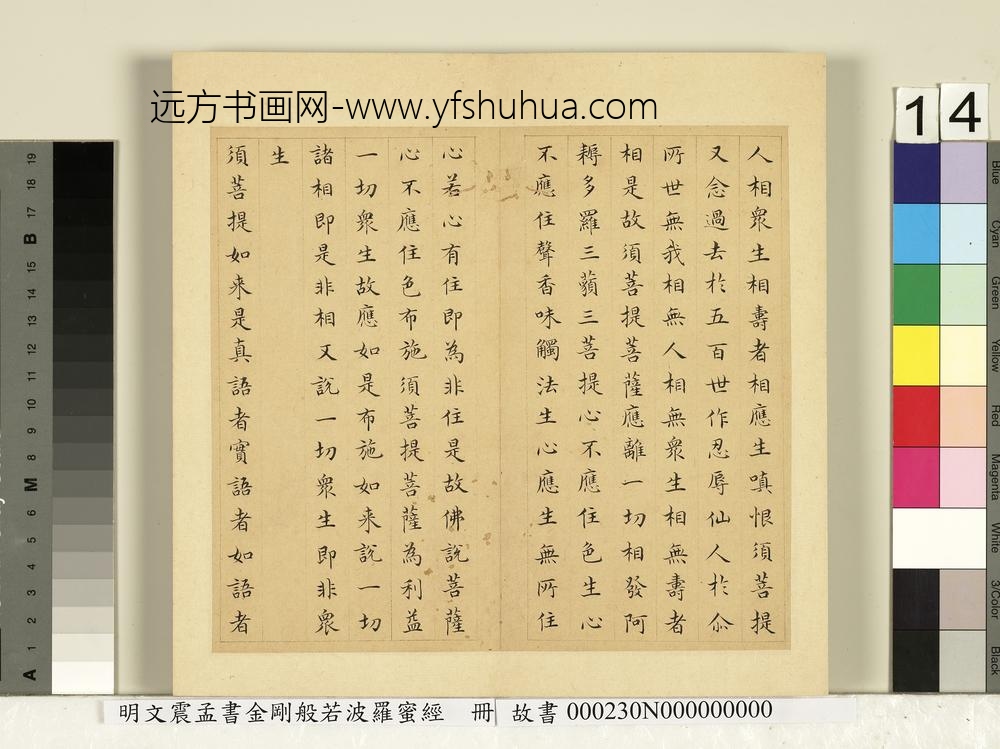 远方书画网-www.yfshuhua.com
人相衆生相壽者相應生嗔恨須菩提
又念過去於五百世作忍辱仙人於尒
所世無我相無人相無衆生相無壽者
相是故須菩提菩薩應離一切相發阿
耨多羅三藐三菩提心不應住色生心
不應住聲香味觸法生心應生無所住
心若心有住即為非住是故佛說菩薩
心不應住色布施須菩提菩薩為利益
一切衆生故應如是布施如来說一切
諸相即是非相又說一切衆生即非衆
生
須菩提如来是真語者實語者如語者
14
Blue
Cyan
Green
Yellow
Red
Magenta
White
3/Color
Black
19
18
17
B
15
14
13
12
11
10
9
8
M
6
5
4
3
2
1
A
明文震孟書金剛般若波羅蜜經 冊 故書 000230N000000000